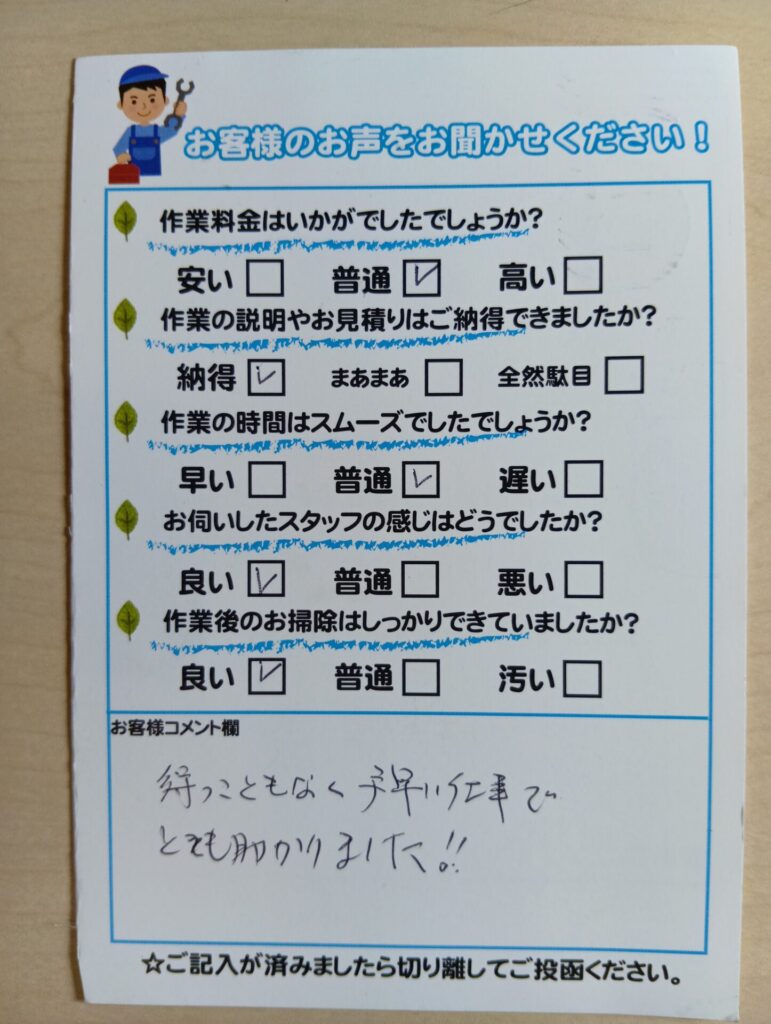 お客様のお声をお聞かせください！
作業料金はいかがでしたでしょうか？
安い □ 普通 ☑ 高い □
作業の説明やお見積りはご納得できましたか？
納得 ☑ まあまあ □ 全然駄目 □
作業の時間はスムーズでしたでしょうか？
早い □ 普通 ☑ 遅い □
お伺いしたスタッフの感じはどうでしたか？
良い ☑ 普通 □ 悪い □
作業後のお掃除はしっかりできていましたか？
良い ☑ 普通 □ 汚い □
お客様コメント欄
待つこともなく手早い仕事で
とても助かりました!!
☆ご記入が済みましたら切り離してご投函ください。